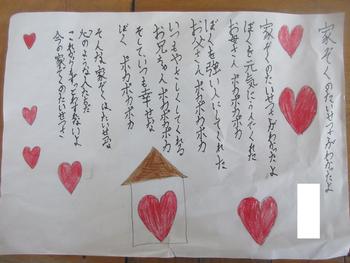 家ぞくのたいせつさがわかったよ
家ぞくのたいせつさがわかったよ
ぼくを元気にうんでくれた
お母さん ポカポカポカ
ぼくを強い人にしてくれた
お父さん ポカポカポカ
いつもやさしくしてくれる
お兄ちゃん ポカポカポカ
そしていつも幸せな
ぼく ポカポカポカ
そんな家ぞくはたいせつな
心のような人たちだ
これからもずっとわすれないよ
今の家ぞくのたいせつさ